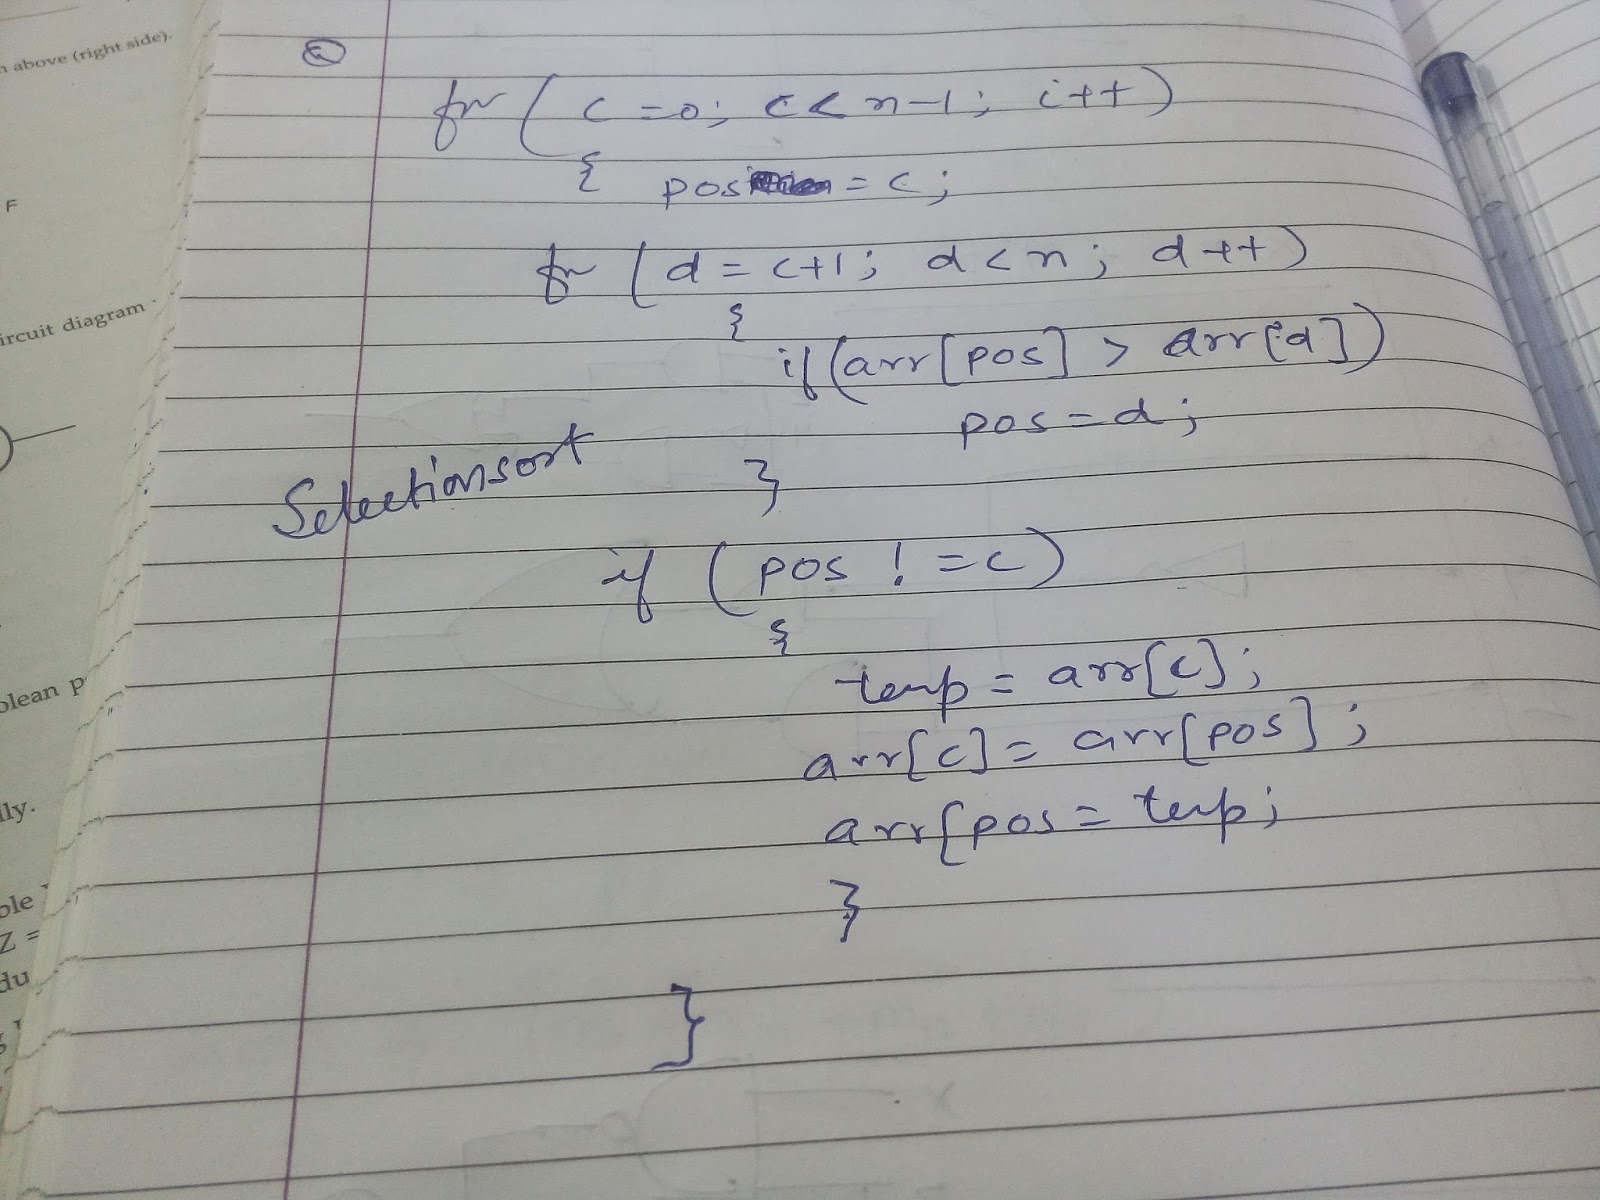 n above (right side).
F
ircuit diagram
olean p
lly.
ole
Z =
du
2
for ( c = 0; c < n-1; i++)
{ pos = c;
for ( d = c+1; d < n; d++)
{
if (arr[pos] > arr[d])
pos = d;
}
Selectionsort
if (pos != c)
{
temp = arr[c];
arr[c] = arr[pos];
arr[pos = temp;
}
}